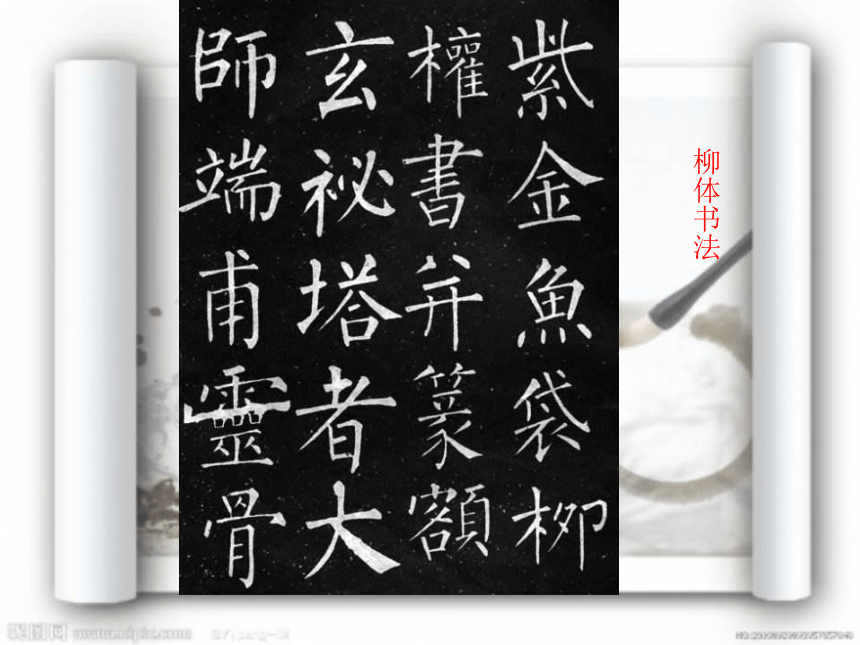 柳体书法
紫金魚袋柳
權書并篆額
玄祕塔者大
師端甫靈骨
昵图网 www.nipic.com